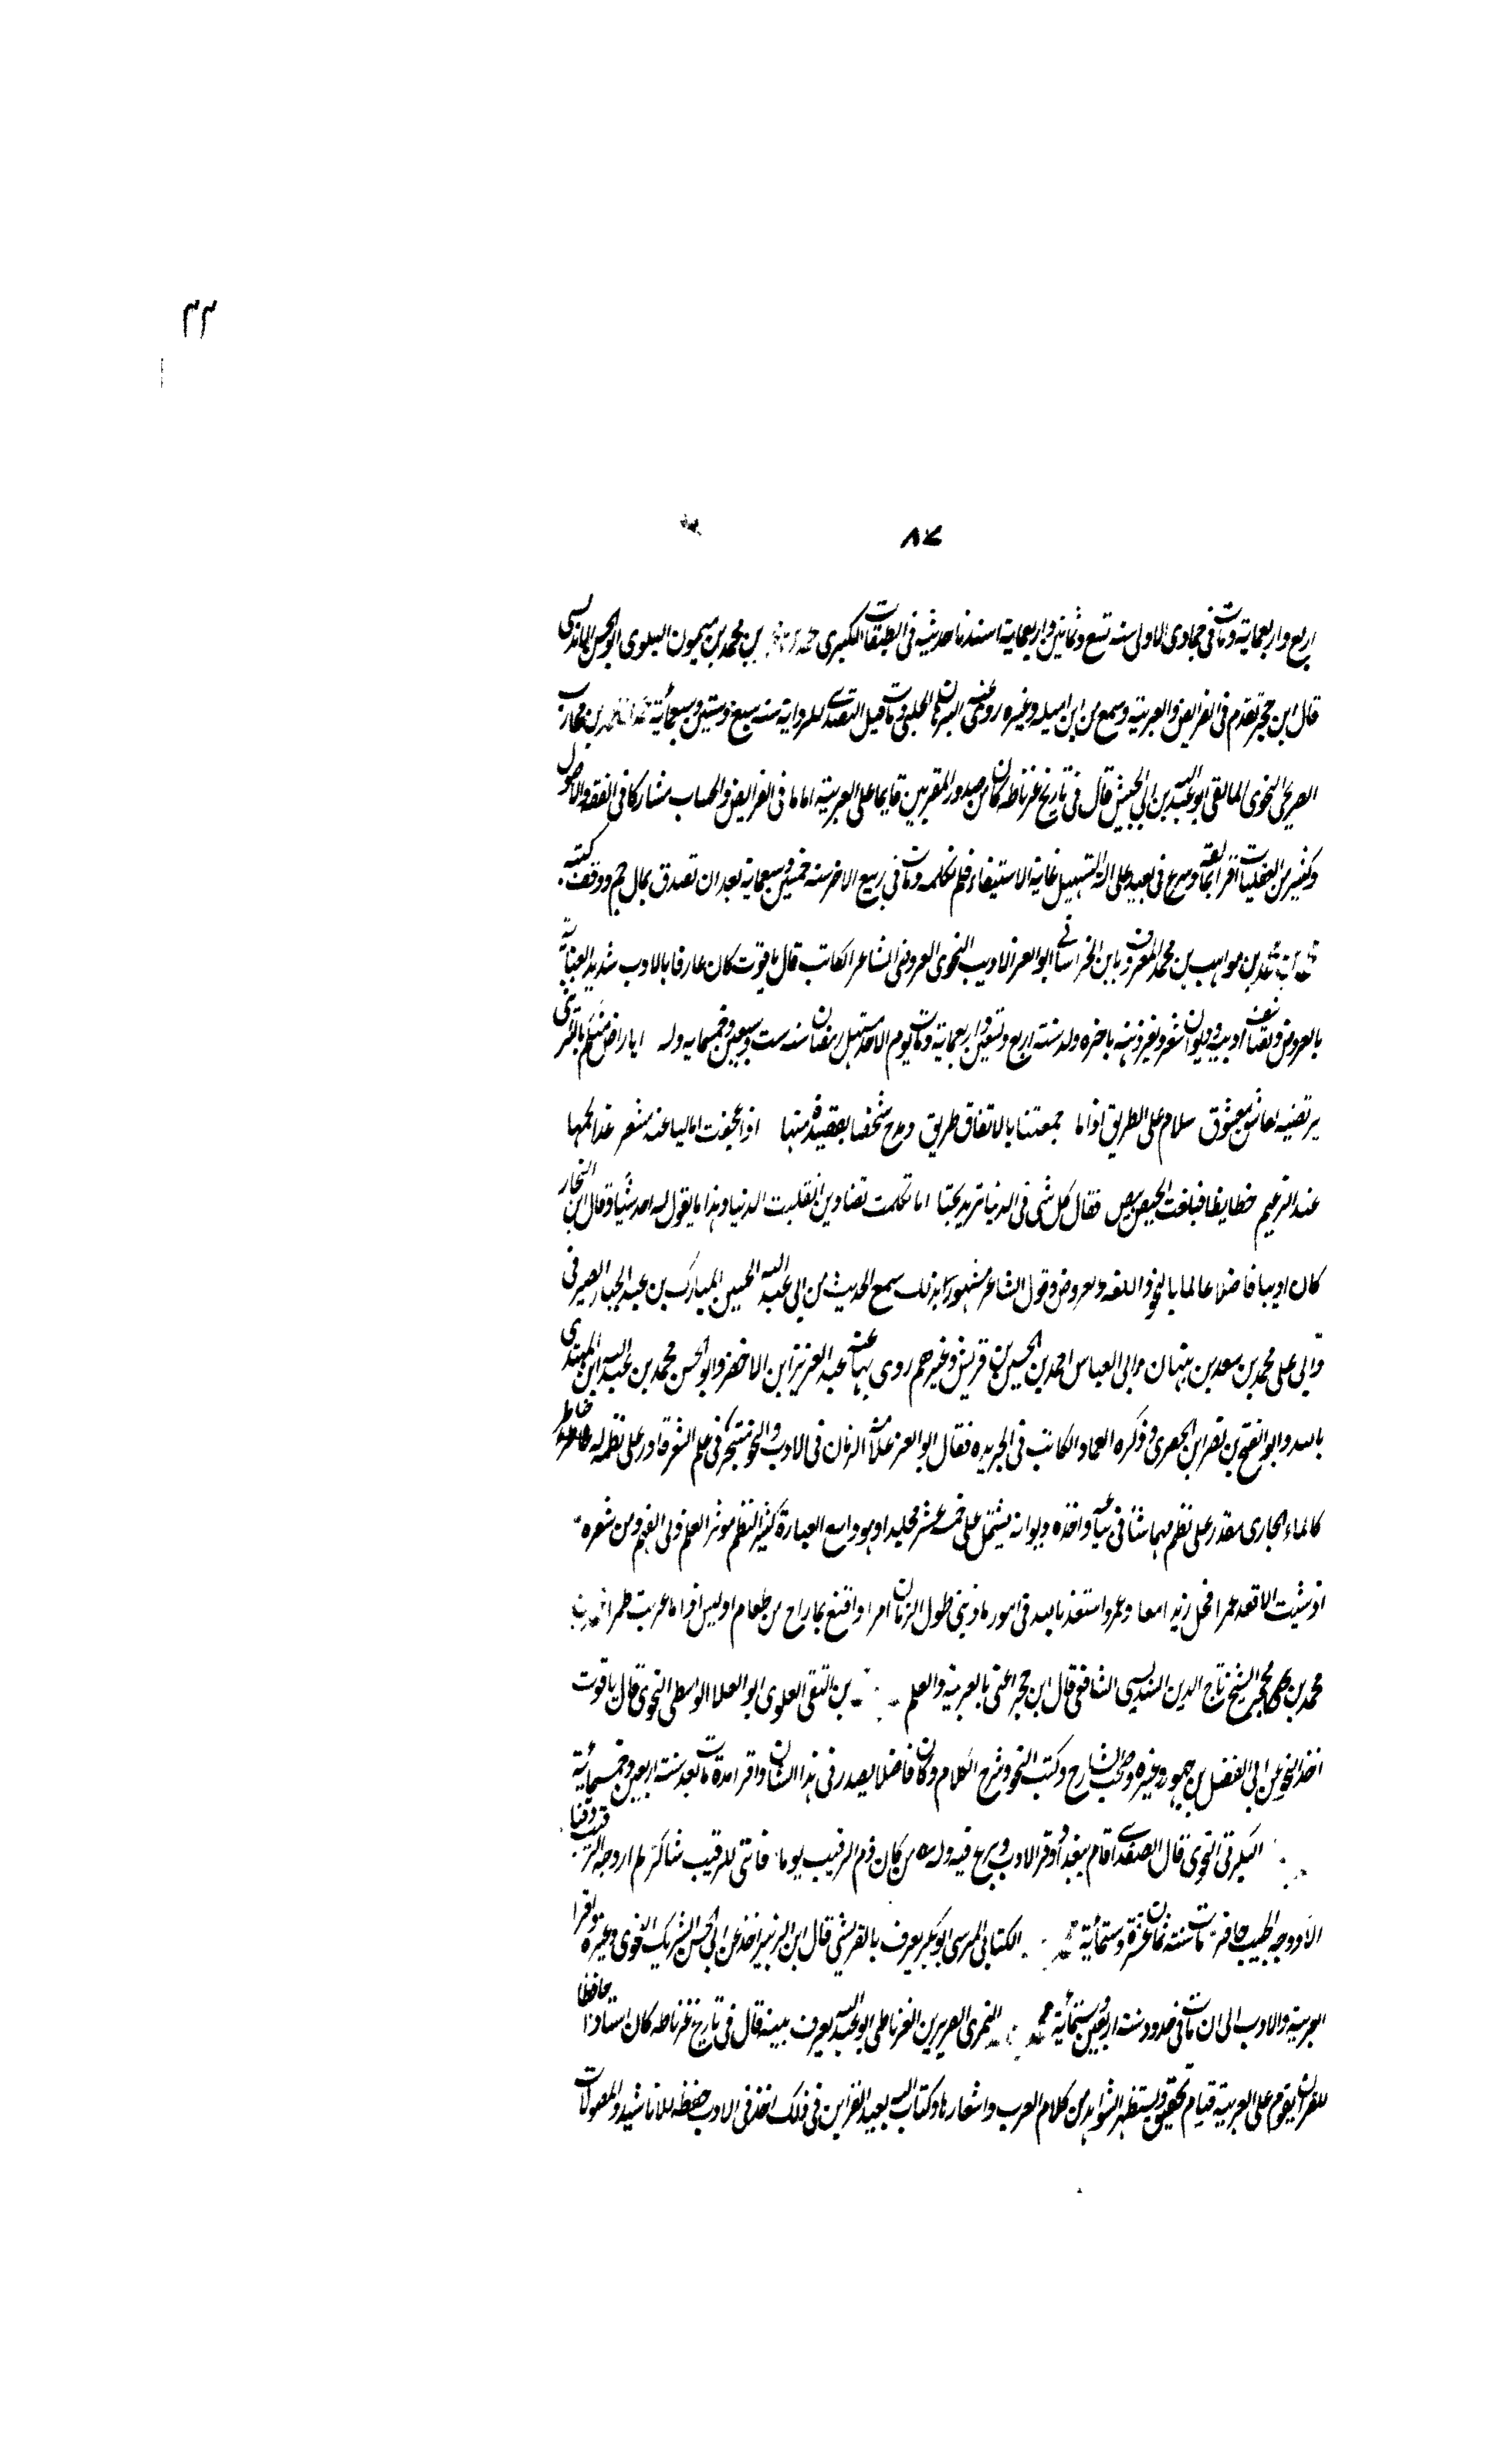 ٤٣
٨٧
اربع واربعماية ومات فى جمادى الاولى سنه تسع وثمانين واربعماية اسندنا حديثه فى الطبقات الكبرى بن محمد بن ميمون البلوى ابو الحسن الاندلسى
قال ابن حجر تقدم فى الفرايض والعربية وسمع من ابن اميله وغيره روى عنه البرهان الحلبى ومات قبل التصدى للرواية سنه سبع وستين وسبعمائة بن محارب
الصريحى النحوى المالقى ابو عبد الله بن ابى الجيش قال فى تاريخ غرناطه كان من صدور المقريين قايما على العربية اماما فى الفرايض والحساب مشاركا فى الفقه والاصول
وكثير من العقليات اقرا بمالقه وشرع فى تقييد على التسهيل غاية الاستيفاء فلم تكمله ومات فى ربيع الاخر سنه خمسين وسبعماية بعد ان تصدق بمال جم ووقف كتبه
محمد بن محمد بن مواهب بن محمد المعروف بابن الخراسانى ابو العز الاديب النحوى العروضى الشاعر الكاتب قال ياقوت كان عارفا بالادب شديد العناية
بالعروض وتصانيف ادبية وديوان شعر وتغير ذهنه باخره ولد سنة اربع وتسعين واربعماية ومات يوم الاحد مستهل رمضان سنه ست وسبعين وخمسمايه وله ايا راض منكم بالشى
يرتضيه عاشق معشوق سلام على الطريق اذا ما جمعتنا بالاتفاق طريق ومدح شخصا بقصيدة منها
عند الزعيم فبلغت الحيص بيص فقال كل شى فى الدنيا انقلبت الدنيا وهذا ما يقول له احد شيا وقال ابن النجار
كان اديبا فاضلا عالما بالنحو واللغه والعروض وقول الشاعر مشهورا بذلك سمع الحديث من ابى عبد الله الحسين المبارك بن عبد الجبار الصيرفى
وابى على محمد بن سعد بن نبهان وابى العباس احمد بن الحسين بن قريش وغيرهم روى عنه عبد العزيز ابن الاخضر وابو الحسن محمد بن عبد الله ابن المهتدى
بالله وابو الفتح بن نصر ابن الحصرى وذكره العماد الكاتب فى الجريده فقال ابو العز علامة الزمان فى الادب والنحو متبحر فى علم الشعر قادر على نظمه له خاطر
كالماء الجارى مقدر على نظم مهما شا فى واخذه ديوانه يشتمل على خمسة عشر مجلدا وهو واسع العبارة كثير النظم موثر العلم ذكى الفهم ومن شعره
ان شيت الا تعد عمرا فخل زيدا معا وعمرا واستعذ بالله فى امور طول الزمان امرا واقنع بما راج من طعام والبس اذا ما عريت طمرا
محمد بن محمد الشيخ تاج الدين السنديسى الشافعى قال ابن حجر اعتنى بالعربية والعلم بن التقى العلوى ابو العلا الواسطى النحوى قال ياقوت
اخذ النحو عن ابى الفضل بن جهور وغيره وكتب النحو وشرح الكلام وكان فاضلا يصدر فى هذا الشان واقرا مدة مات بعد سنة اربعين وخمسمائة
النحوى قال الصفدى اقام ببغداد وقرا الادب وبرع فيه وله من كان ذم الرقيب يوما فاننى للرقيب شاكر لم ار وجه الرقيب وقتا
الا ووجه الحبيب حاضر مات سنة ثمان عشرة وستمائة الكتانى المرسى ابو بكر يعرف بالقرشى قال ابن الزبير اخذ عن ابى الحسن الشريك النحوى وغيره واقرا
العربية والادب الى ان مات فى حدود سنة اربعين وستمائة محمد النمرى الضرير من الغرناطى ابو عبد الله يعرف قال فى تاريخ غرناطه كان استاذا حافظا
للقران يقوم على العربية قيام تحقيق ويستظهر الشواهد من كلام العرب واشعارها وكتاب الله بعيد القرين فى ذلك اخذ فى الادب حفظه للاناشيد والمطولات